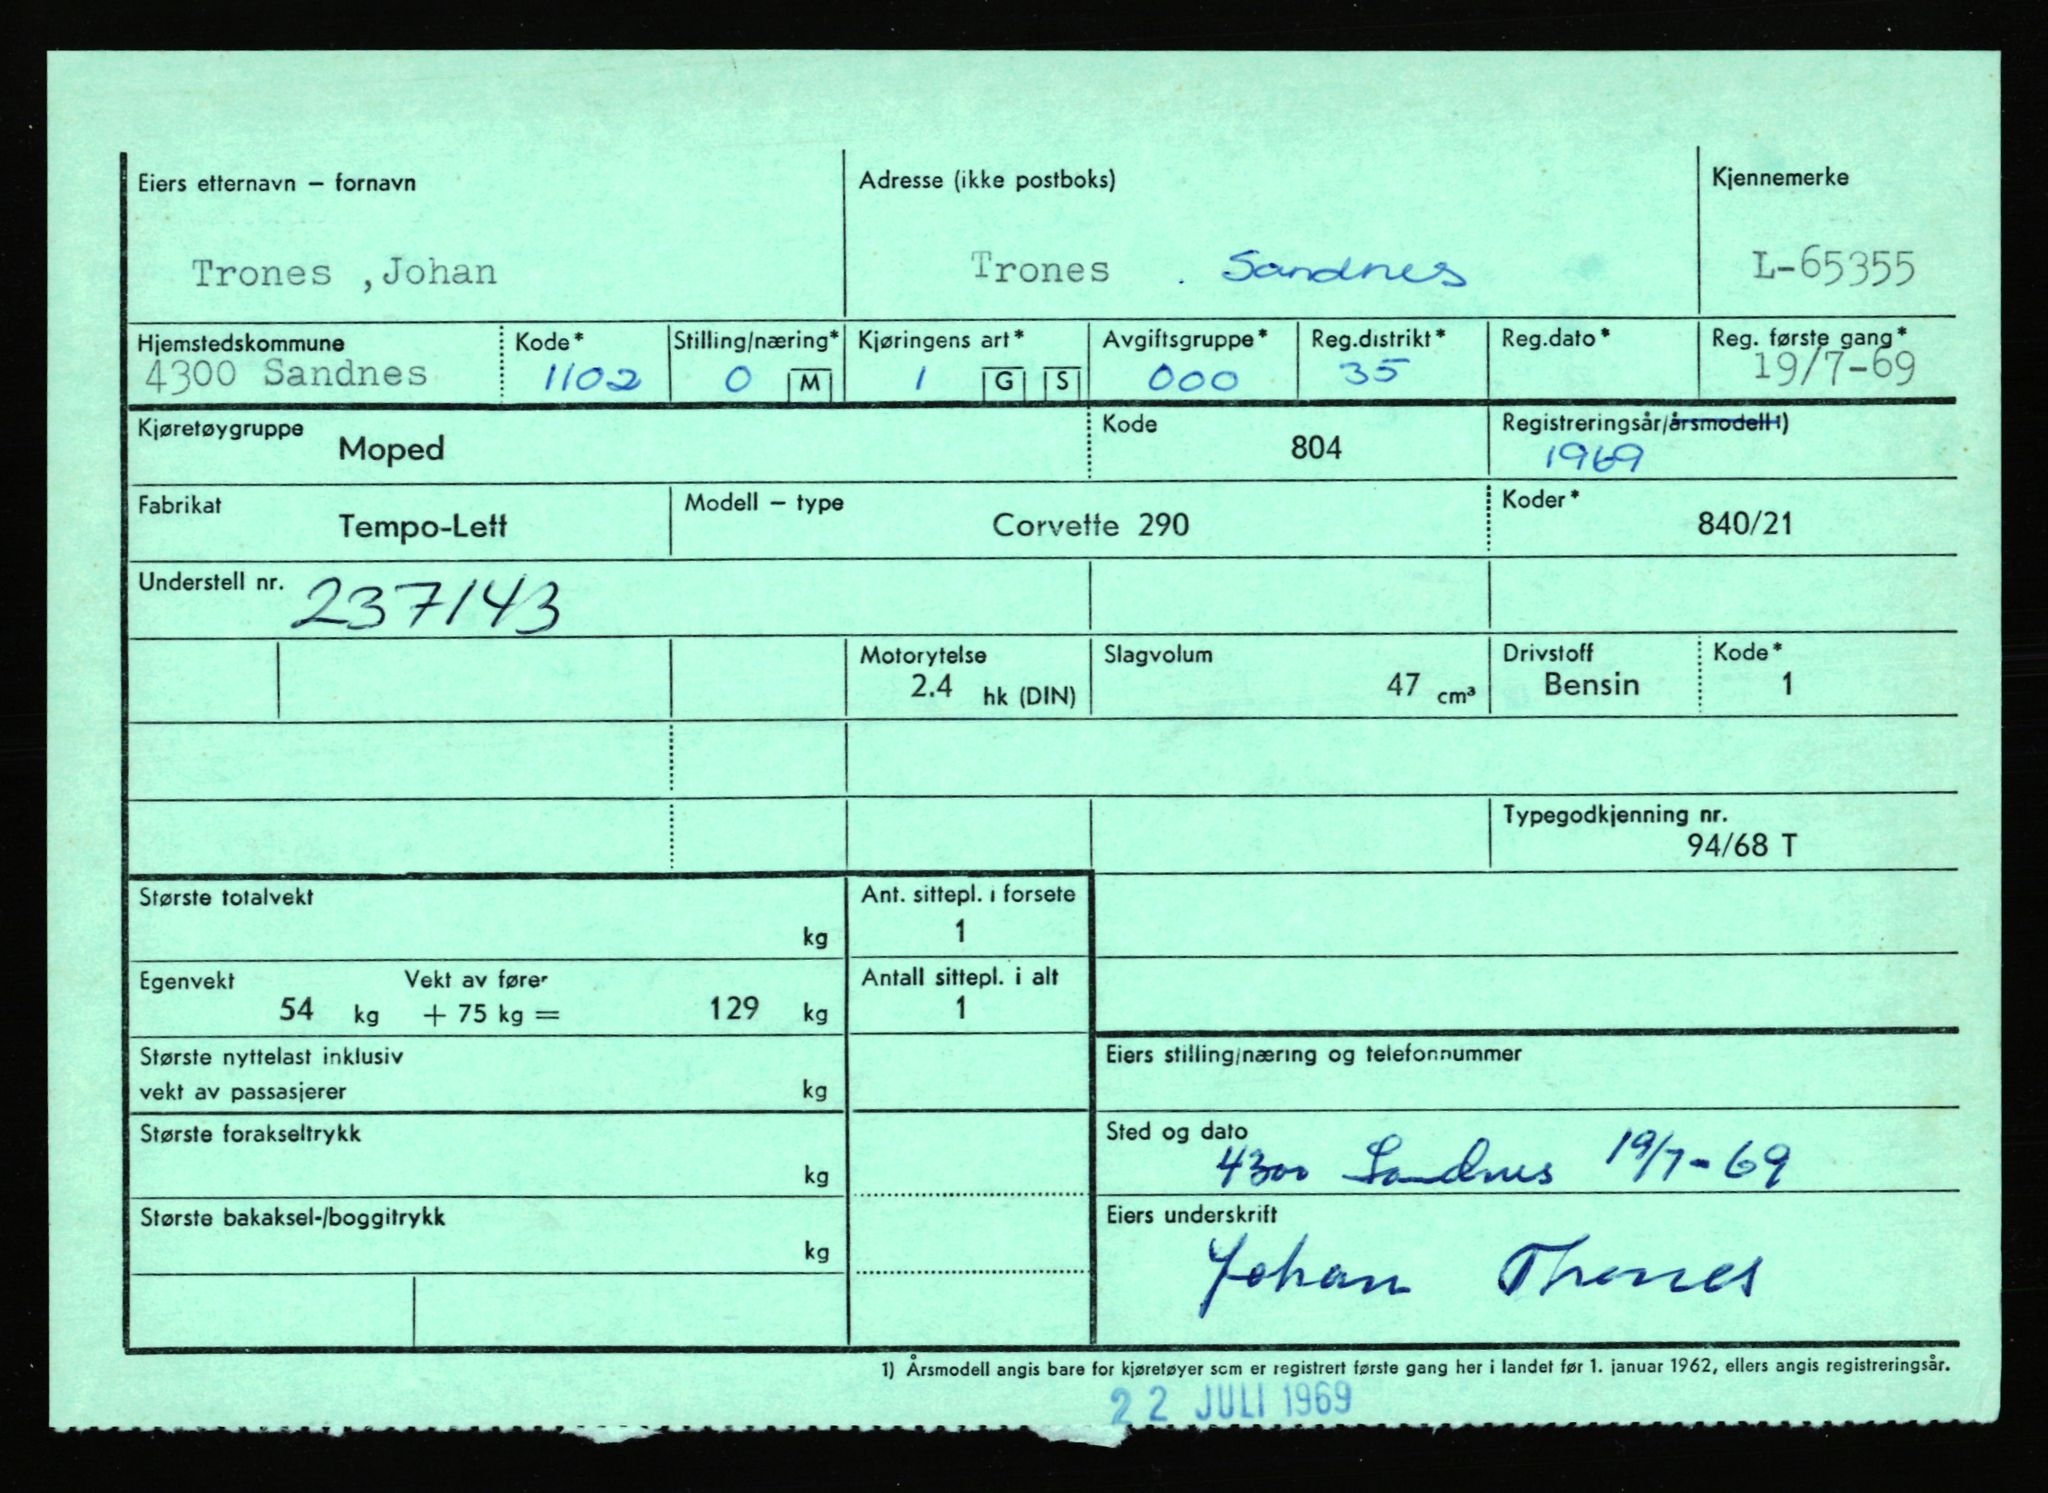 Eiers etternavn – fornavn Adresse (ikke postboks) Kjennemerke
Trones ,Johan Trones . Sandnes L-65355
Hjemstedskommune Kode* Stilling/næring* Kjøringens art* Avgiftsgruppe* Reg.distrikt* Reg.dato* Reg. første gang*
4300 Sandnes 1102 0 M 1 G S 000 35 19/7-69
Kjøretøygruppe Kode Registreringsår/årsmodell 1)
Moped 804 1969
Fabrikat Modell – type Koder*
Tempo-Lett Corvette 290 840/21
Understell nr. 237143
Motorytelse Slagvolum Drivstoff Kode*
2.4 hk (DIN) 47 cm³ Bensin 1
Typegodkjenning nr.
94/68 T
Største totalvekt Ant. sittepl. i forsete
kg 1
Egenvekt Vekt av fører Antall sittepl. i alt
54 kg + 75 kg = 129 kg 1
Største nyttelast inklusiv Eiers stilling/næring og telefonnummer
vekt av passasjerer kg
Største forakseltrykk Sted og dato
kg 4300 Sandnes 19/7-69
Største bakaksel-/boggitrykk Eiers underskrift
kg Johan Thrones
1) Årsmodell angis bare for kjøretøyer som er registrert første gang her i landet før 1. januar 1962, ellers angis registreringsår.
22 JULI 1969